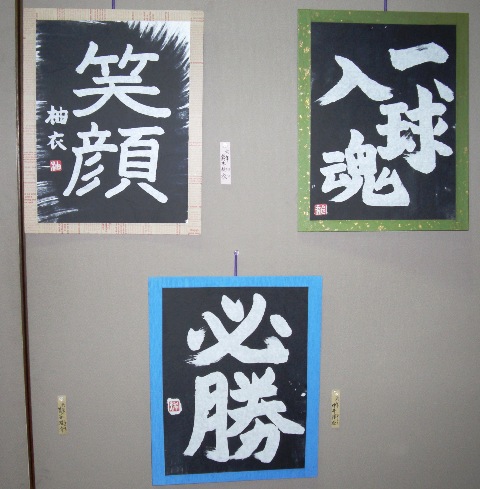 笑顔
柚衣
一球
入魂
必勝